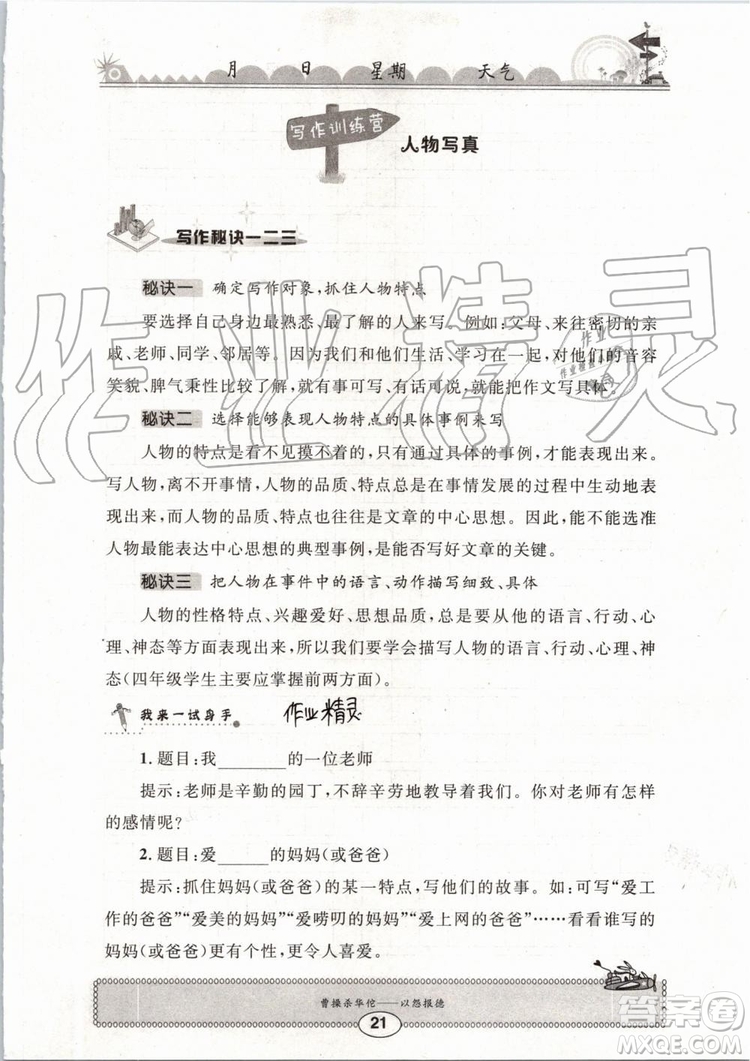 月 日 星期 天气
写作训练营
人物写真
写作秘诀一二三
秘诀一 确定写作对象，抓住人物特点
要选择自己身边最熟悉、最了解的人来写。例如：父母、来往密切的亲
戚、老师、同学、邻居等。因为我们和他们生活、学习在一起，对他们的音容
笑貌、脾气秉性比较了解，就有事可写、有话可说，就能把作文写具体。
秘诀二 选择能够表现人物特点的具体事例来写
人物的特点是看不见摸不着的，只有通过具体的事例，才能表现出来。
写人物，离不开事情，人物的品质、特点总是在事情发展的过程中生动地表
现出来，而人物的品质、特点也往往是文章的中心思想。因此，能不能选准
人物最能表达中心思想的典型事例，是能否写好文章的关键。
秘诀三 把人物在事件中的语言、动作描写细致、具体
人物的性格特点、兴趣爱好、思想品质，总是要从他的语言、行动、心
理、神态等方面表现出来，所以我们要学会描写人物的语言、行动、心理、神
态（四年级学生主要应掌握前两方面）。
我来一试身手
作业精灵
1. 题目：我______的一位老师
提示：老师是辛勤的园丁，不辞辛劳地教导着我们。你对老师有怎样
的感情呢？
2. 题目：爱______的妈妈（或爸爸）
提示：抓住妈妈（或爸爸）的某一特点，写他们的故事。如：可写“爱工
作的爸爸”“爱美的妈妈”“爱唠叨的妈妈”“爱上网的爸爸”……看看谁写的
妈妈（或爸爸）更有个性，更令人喜爱。
曹操杀华佗——以怨报德
21
作业精灵
答案圈
MXQE.COM